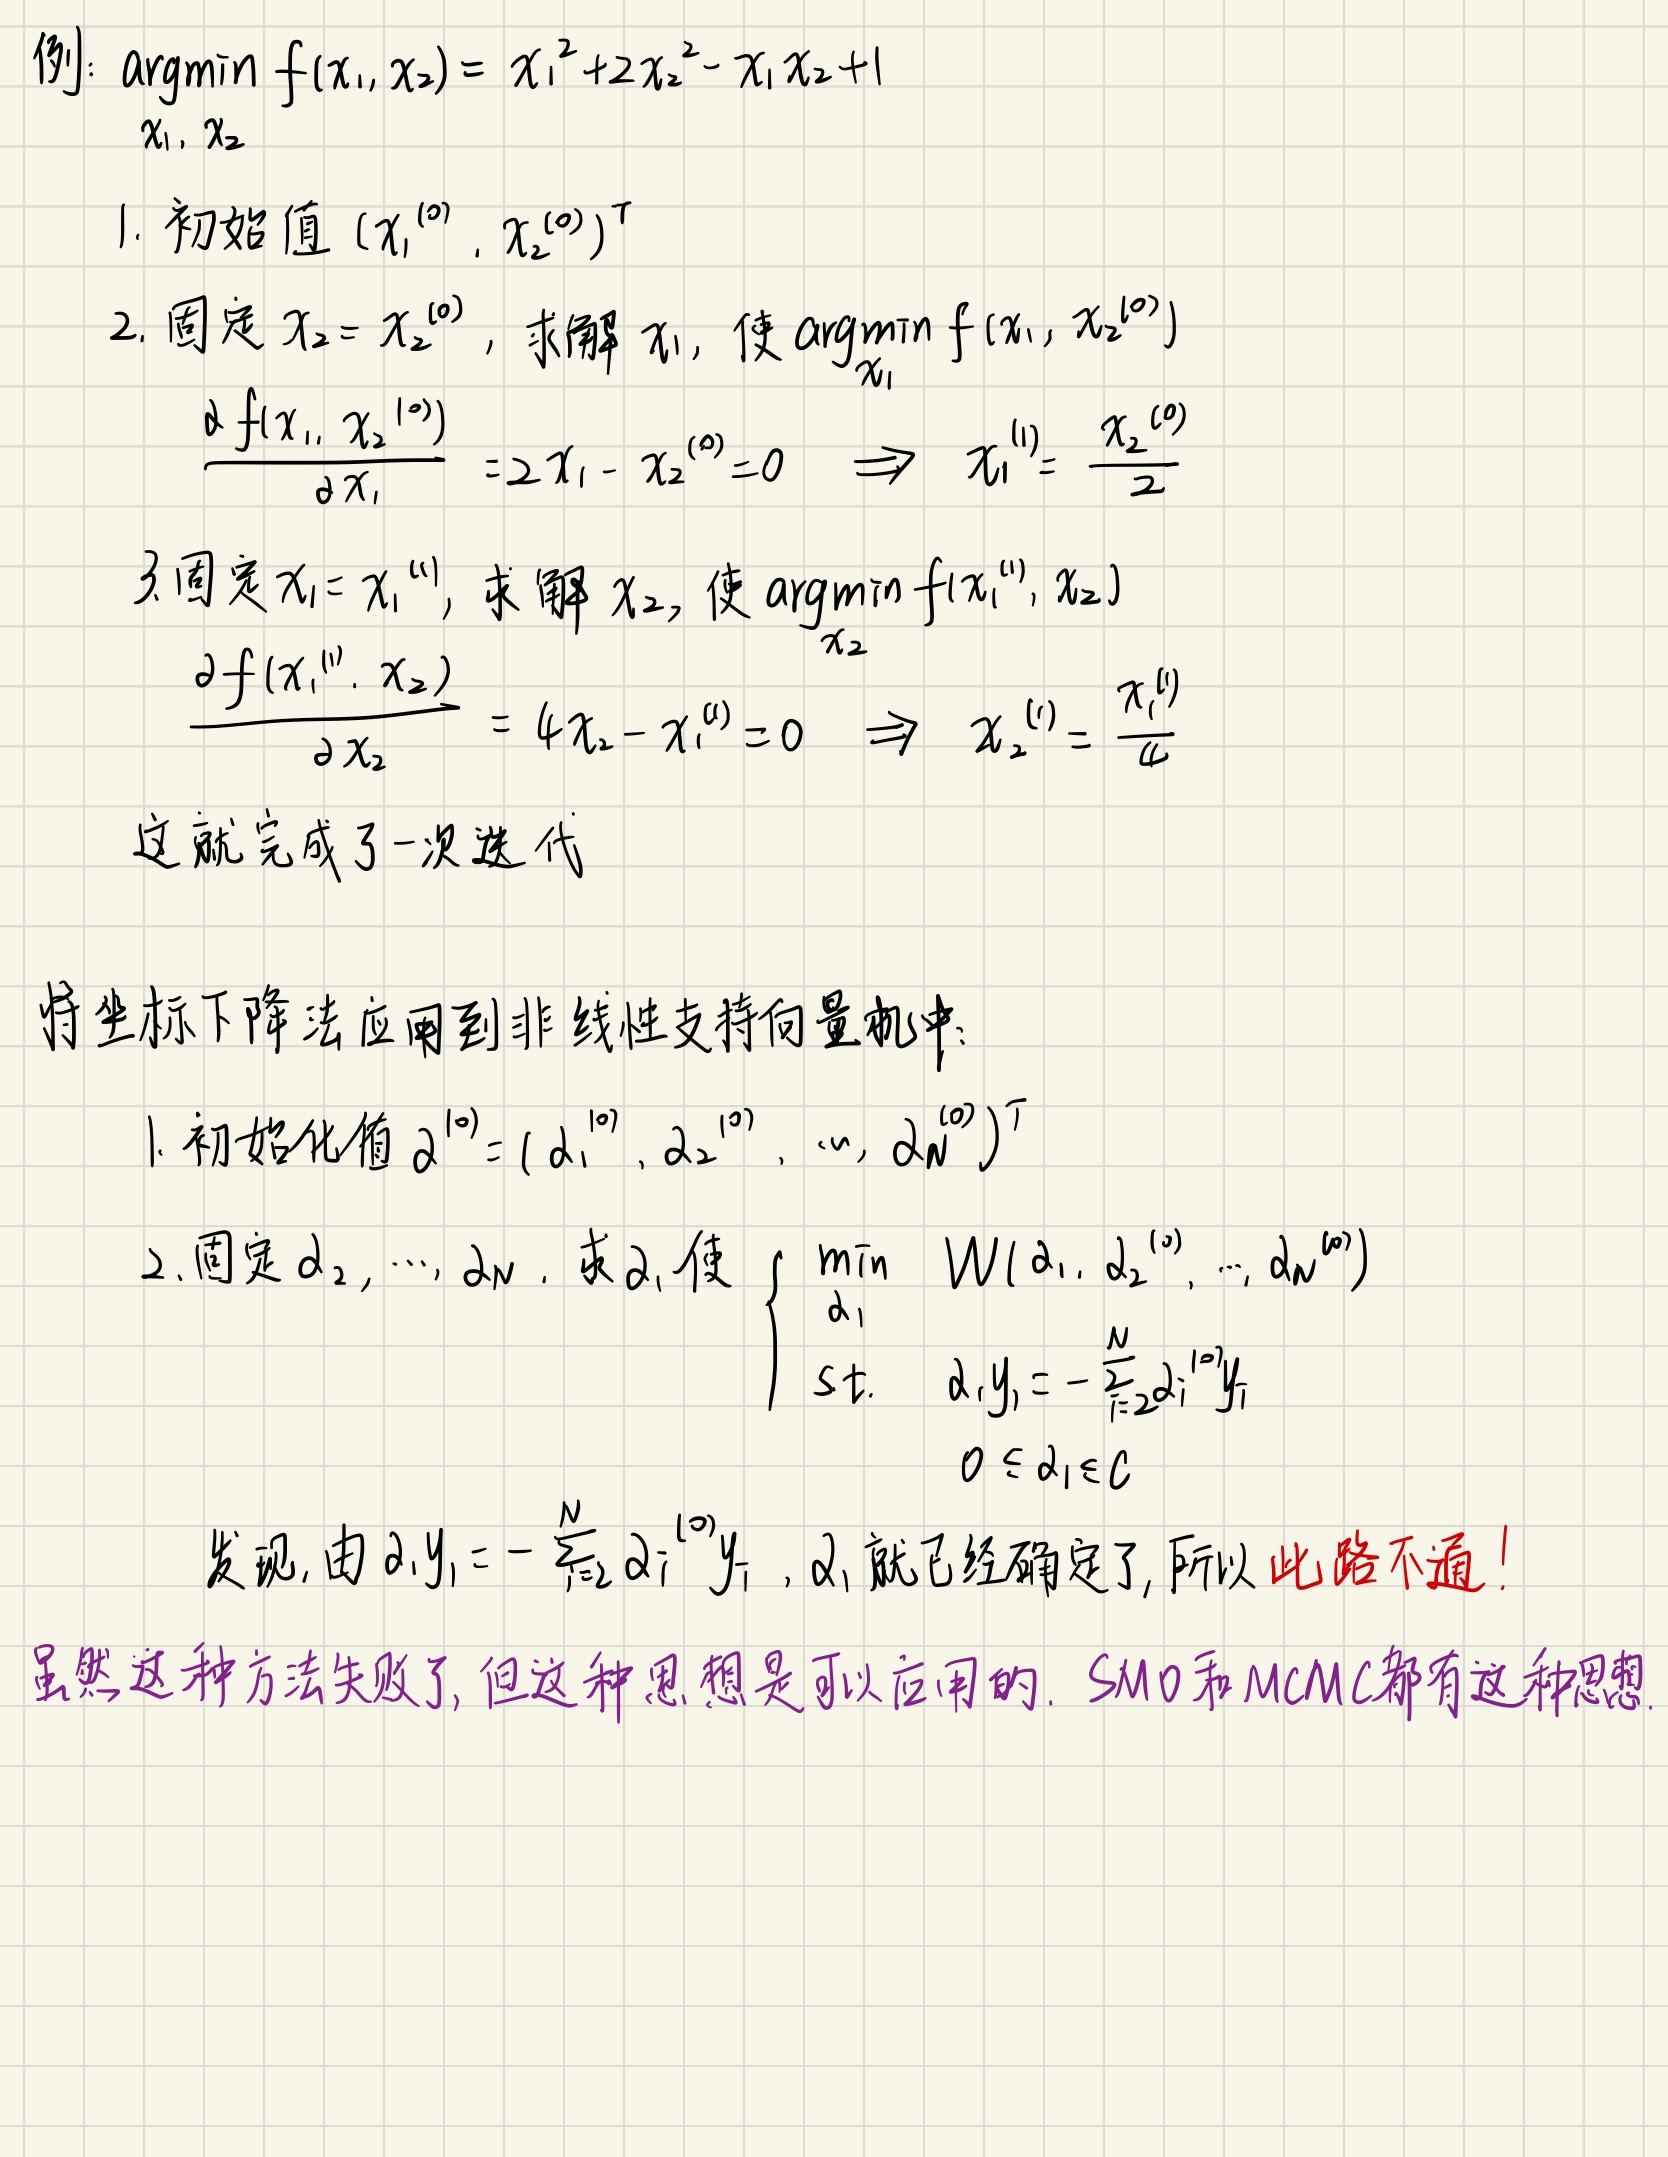 例: argmin f(x₁, x₂) = x₁² + 2x₂² - x₁x₂ + 1
x₁, x₂
1. 初始值 (x₁⁽⁰⁾, x₂⁽⁰⁾)ᵀ
2. 固定 x₂ = x₂⁽⁰⁾, 求解 x₁, 使 argmin f(x₁, x₂⁽⁰⁾)
x₁
∂f(x₁, x₂⁽⁰⁾)/∂x₁ = 2x₁ - x₂⁽⁰⁾ = 0 ⇒ x₁⁽¹⁾ = x₂⁽⁰⁾/2
3. 固定 x₁ = x₁⁽¹⁾, 求解 x₂, 使 argmin f(x₁⁽¹⁾, x₂)
x₂
∂f(x₁⁽¹⁾, x₂)/∂x₂ = 4x₂ - x₁⁽¹⁾ = 0 ⇒ x₂⁽¹⁾ = x₁⁽¹⁾/4
这就完成了一次迭代
将坐标下降法应用到非线性支持向量机中:
1. 初始化值 α⁽⁰⁾ = (α₁⁽⁰⁾, α₂⁽⁰⁾, ⋯, α_N⁽⁰⁾)ᵀ
2. 固定 α₂, ⋯, α_N, 求 α₁ 使 { min W(α₁, α₂⁽⁰⁾, ⋯, α_N⁽⁰⁾)
α₁
s.t. α₁y₁ = - ∑_{i=2}^N αᵢ⁽⁰⁾yᵢ
0 ≤ α₁ ≤ C
发现, 由 α₁y₁ = - ∑_{i=2}^N αᵢ⁽⁰⁾yᵢ, α₁ 就已经确定了, 所以 此路不通!
虽然这种方法失败了, 但这种思想是可以应用的. SMO和MCMC都有这种思想.